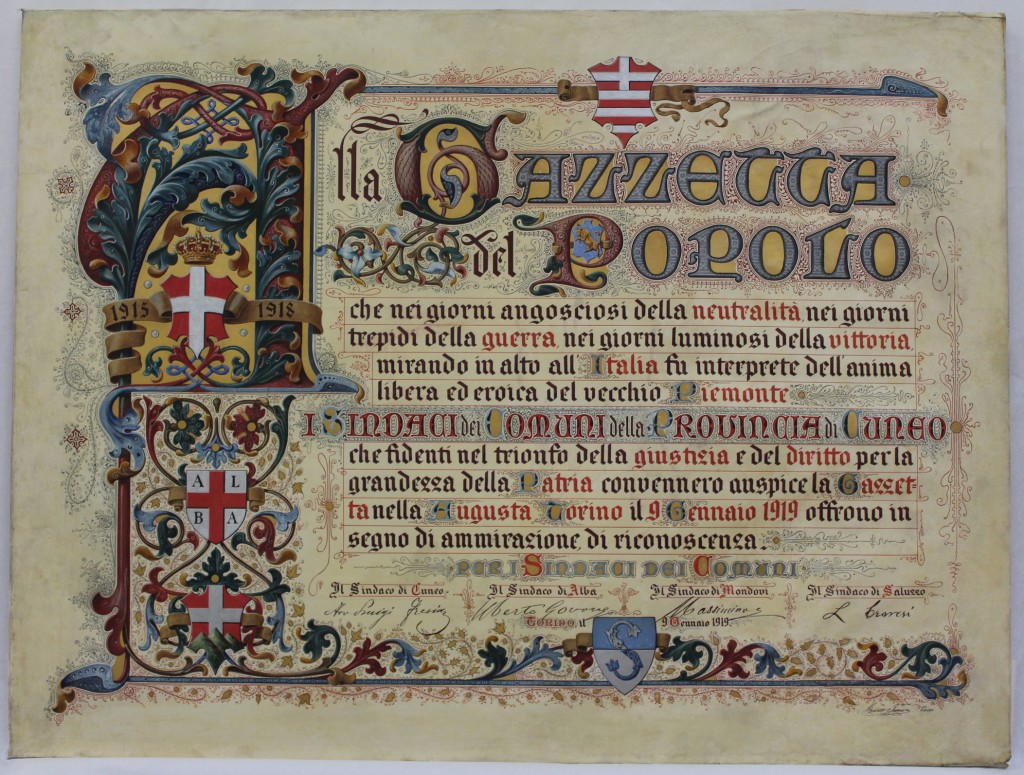 Alla Gazzetta
del Popolo
1915 1918
che nei giorni angosciosi della neutralità, nei giorni
trepidi della guerra, nei giorni luminosi della vittoria,
mirando in alto all'Italia fu interprete dell'anima
libera ed eroica del vecchio Piemonte
I Sindaci dei Comuni della Provincia di Cuneo
che fidenti nel trionfo della giustizia e del diritto per la
grandezza della Patria convennero auspice la Gazzet-
ta nella Augusta Torino il 9 Gennaio 1919 offrono in
segno di ammirazione, di riconoscenza.
AL
BA
PER I SINDACI DEI COMUNI
Il Sindaco di Cuneo Il Sindaco di Alba Il Sindaco di Mondovì Il Sindaco di Saluzzo
Avv Luigi
TORINO, il 9 Gennaio 1919.